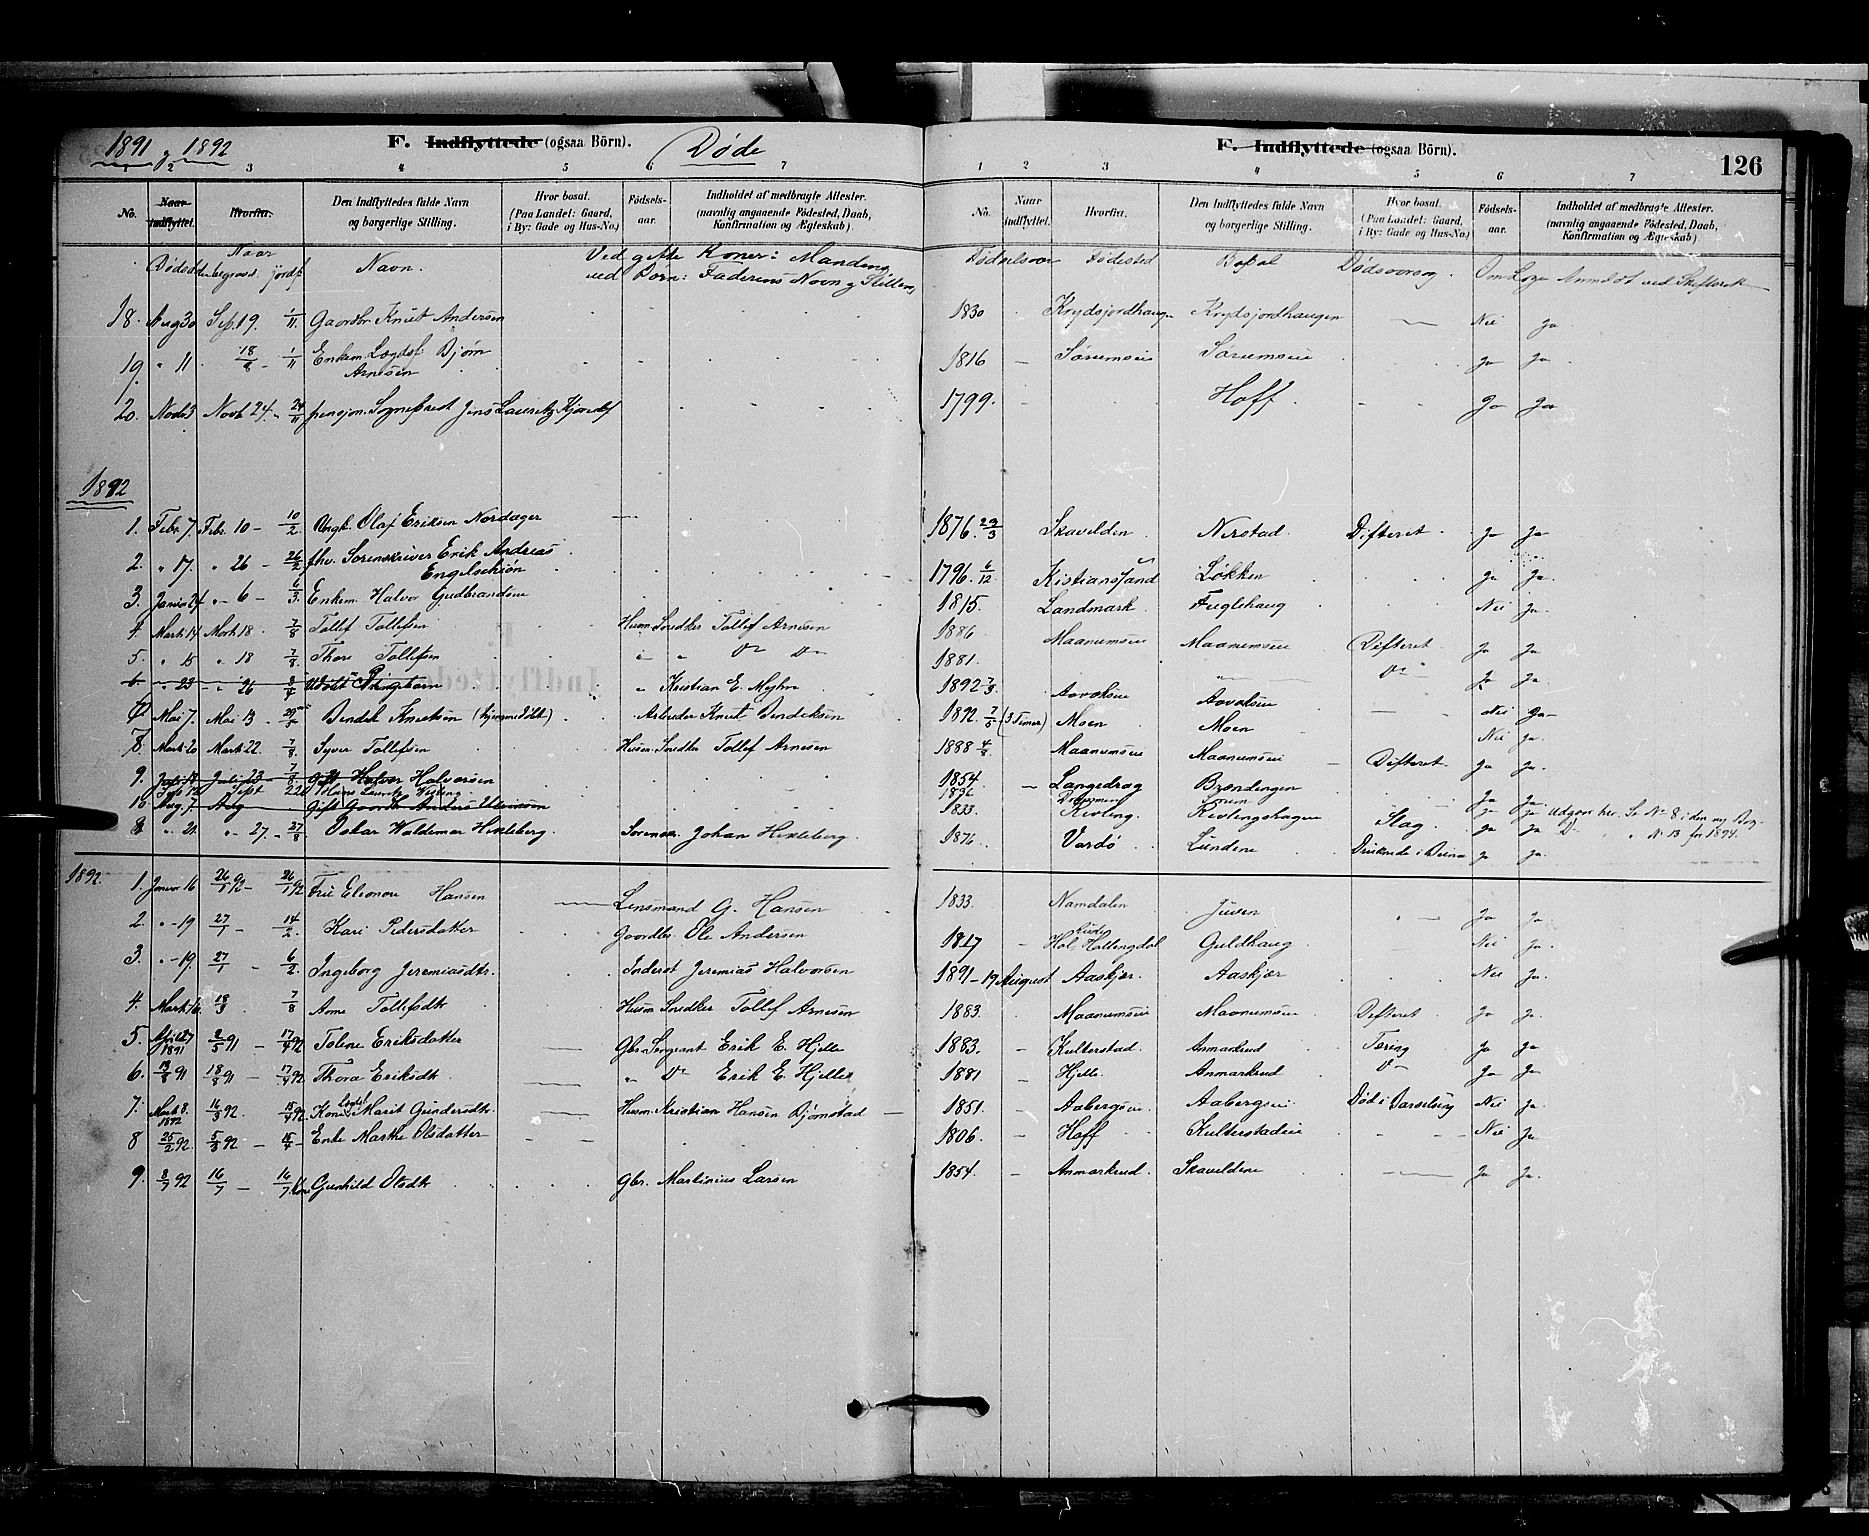 1891 og 1892
F. Indflyttede (ogsaa Börn). Døde
1 2 3 4 5 6 7
No. Naar indflyttet. Hvorfra. Den Indflyttedes fulde Navn og borgerlige Stilling. Hvor bosat. (Paa Landet: Gaard, i By: Gade og Hus-No.) Fødsels-aar. Indholdet af medbragte Attester. (navnlig angaaende Födested, Daab, Konfirmation og Ægteskab).
Naar
begravet. jordf. Navn. Ved gifte Koner: Mandens
ved Børn: Faderens Navn og Stilling
18. Aug 30 Sep. 19. 1/11. Gaardbr. Knut Andersen
19. " 11 18/8 - 1/11 Enkem. Lægdsf. Bjørn
Arnesen
20. Novb 3 Novb 24. 24/11 pensjon. Sogneprest Jens Lauritz
1892
1. Febr. 7. Febr. 10 - 10/2 Ungk. Olaf Eriksen Nordager
2. " 17. " 26 - 26/2 fhv. Sorenskriver Erik Andreas
Engelschiøn
3. Januar 24 " 6 - 6/3. Enkem. Halvor Gudbrandsen
4. Marts 14 Mark 18. 7/8 Tollef Tollefsen Husm. Snedker Tollef Arnesen
5. " 15 " 18 7/8. Thore Tollefsen " " Do Do
6. " 23 " 26 3/4 Udøbt Pigebarn " Kristian E. Myhre
7 Mai 7. Mai 13 - 29/5 Bendik Knutsen (hjemmedøbt) Arbeider Knut Bendiksen
8. Mark 20 Mark 22. 7/8 Syver Tollefsen Husm. Snedker Tollef Arnesen
9. Juli 14 Juli 23 7/8. Gift Halvor Halvorsen
Sept 22 Hans Lauritz
10 Aug. 7 Aug Gift Gaardbr. Anders
8 " 21. " 27 - 27/8 Oskar Waldemar Hexeberg. Johan Hexeberg
1892. 1. Januar 16 26/1 92 - 26/1 92 Fru Eleonore Hansen Lensmand G. Hansen
2. " - 19 27/1 - 14/2. Kari Pedersdatter Gaardbr. Ole Andersen
3. " - 19. 27/1 - 6/2. Ingeborg Jeremiasdtr. Inderst Jeremias Halvorsen
4. Mark 16. 18/3. 7/8 Anne Tollefsdtr Husm Snedker Tollef Arnesen
5. April 27 1891 2/5 91 - 17/4 92 Toline Eriksdatter Gbr. Sergeant Erik E. Hjelle
6. 13/8 91 18/8 91 - 17/4 92 Thora Eriksdtr. " Do Erik E. Hjelle
7. Mark 8. 1892 16/3 92. 15/4 92 Kone Lægdsl. Marit Gundersdtr. Husm. Kristian Hansen Bjørnstad
8 25/2 92 5/3 92 - 15/4 - Enke Marthe Olsdatter
9. 8/7 92 16/7 - 16/7 Kone Gunhild Olsdtr Gbr. Martinius Larsen
F. Indflyttede (ogsaa Börn). 126
1 2 3 4 5 6 7
No. Naar indflyttet. Hvorfra. Den Indflyttedes fulde Navn og borgerlige Stilling. Hvor bosat. (Paa Landet: Gaard, i By: Gade og Hus-No.) Fødsels-aar. Indholdet af medbragte Attester. (navnlig angaaende Födested, Daab, Konfirmation og Ægteskab)
Fødselsaar Fødested Bopæl Dødsaarsag. Om Læge Anmeldt ved Skifteret
1830 Krydsjordhaugen Krydsjordhaugen Nei ja
1816 - Sørumseie Sørumseie ja ja
1799. Hoff ja ja
1876. 29/3 Skavelden Nerstad Difteret ja ja
1796. 6/12 Kistiansand Løkken ja ja.
1815. Landmark. Fuglehaug Nei ja.
1886 Maanumseie Maanumseie Difteret ja ja
1881. " " Do " ja ja.
1892 Aavolseie
1892. 7/5 (3 Timer) Moen Moen Nei ja.
1888 Maanumseie Maanumseie Difteret ja ja.
1854. Langedrag Brændengen ja ja.
1833. Kivling. Kivlingshagen Slag. ja ja Udgaar her. Se No 8 i den ny Bog.
Do " No 13 for 1894.
1876 Vardø Lundene Druknede i ja ja.
1833. Namdalen Juven ja ja.
1817 Hol, Hallingdal Guldhaug Nei ja.
1891 - 19 August Aaskjær. Aaskjær Nei ja
1883. Maanumseie Maanumseie Difteret ja ja.
1883. - Kulterstad. Anmarkrud Tæring ja ja
1881 - Hjelle. Anmarkrud Do ja ja
1851. - Aabergseie. Aabergseie Død i Barselseng Nei ja.
1806. - Hoff Kulterstadeie Nei ja
1854 - Anmarkrud. Skaveldene ja ja.